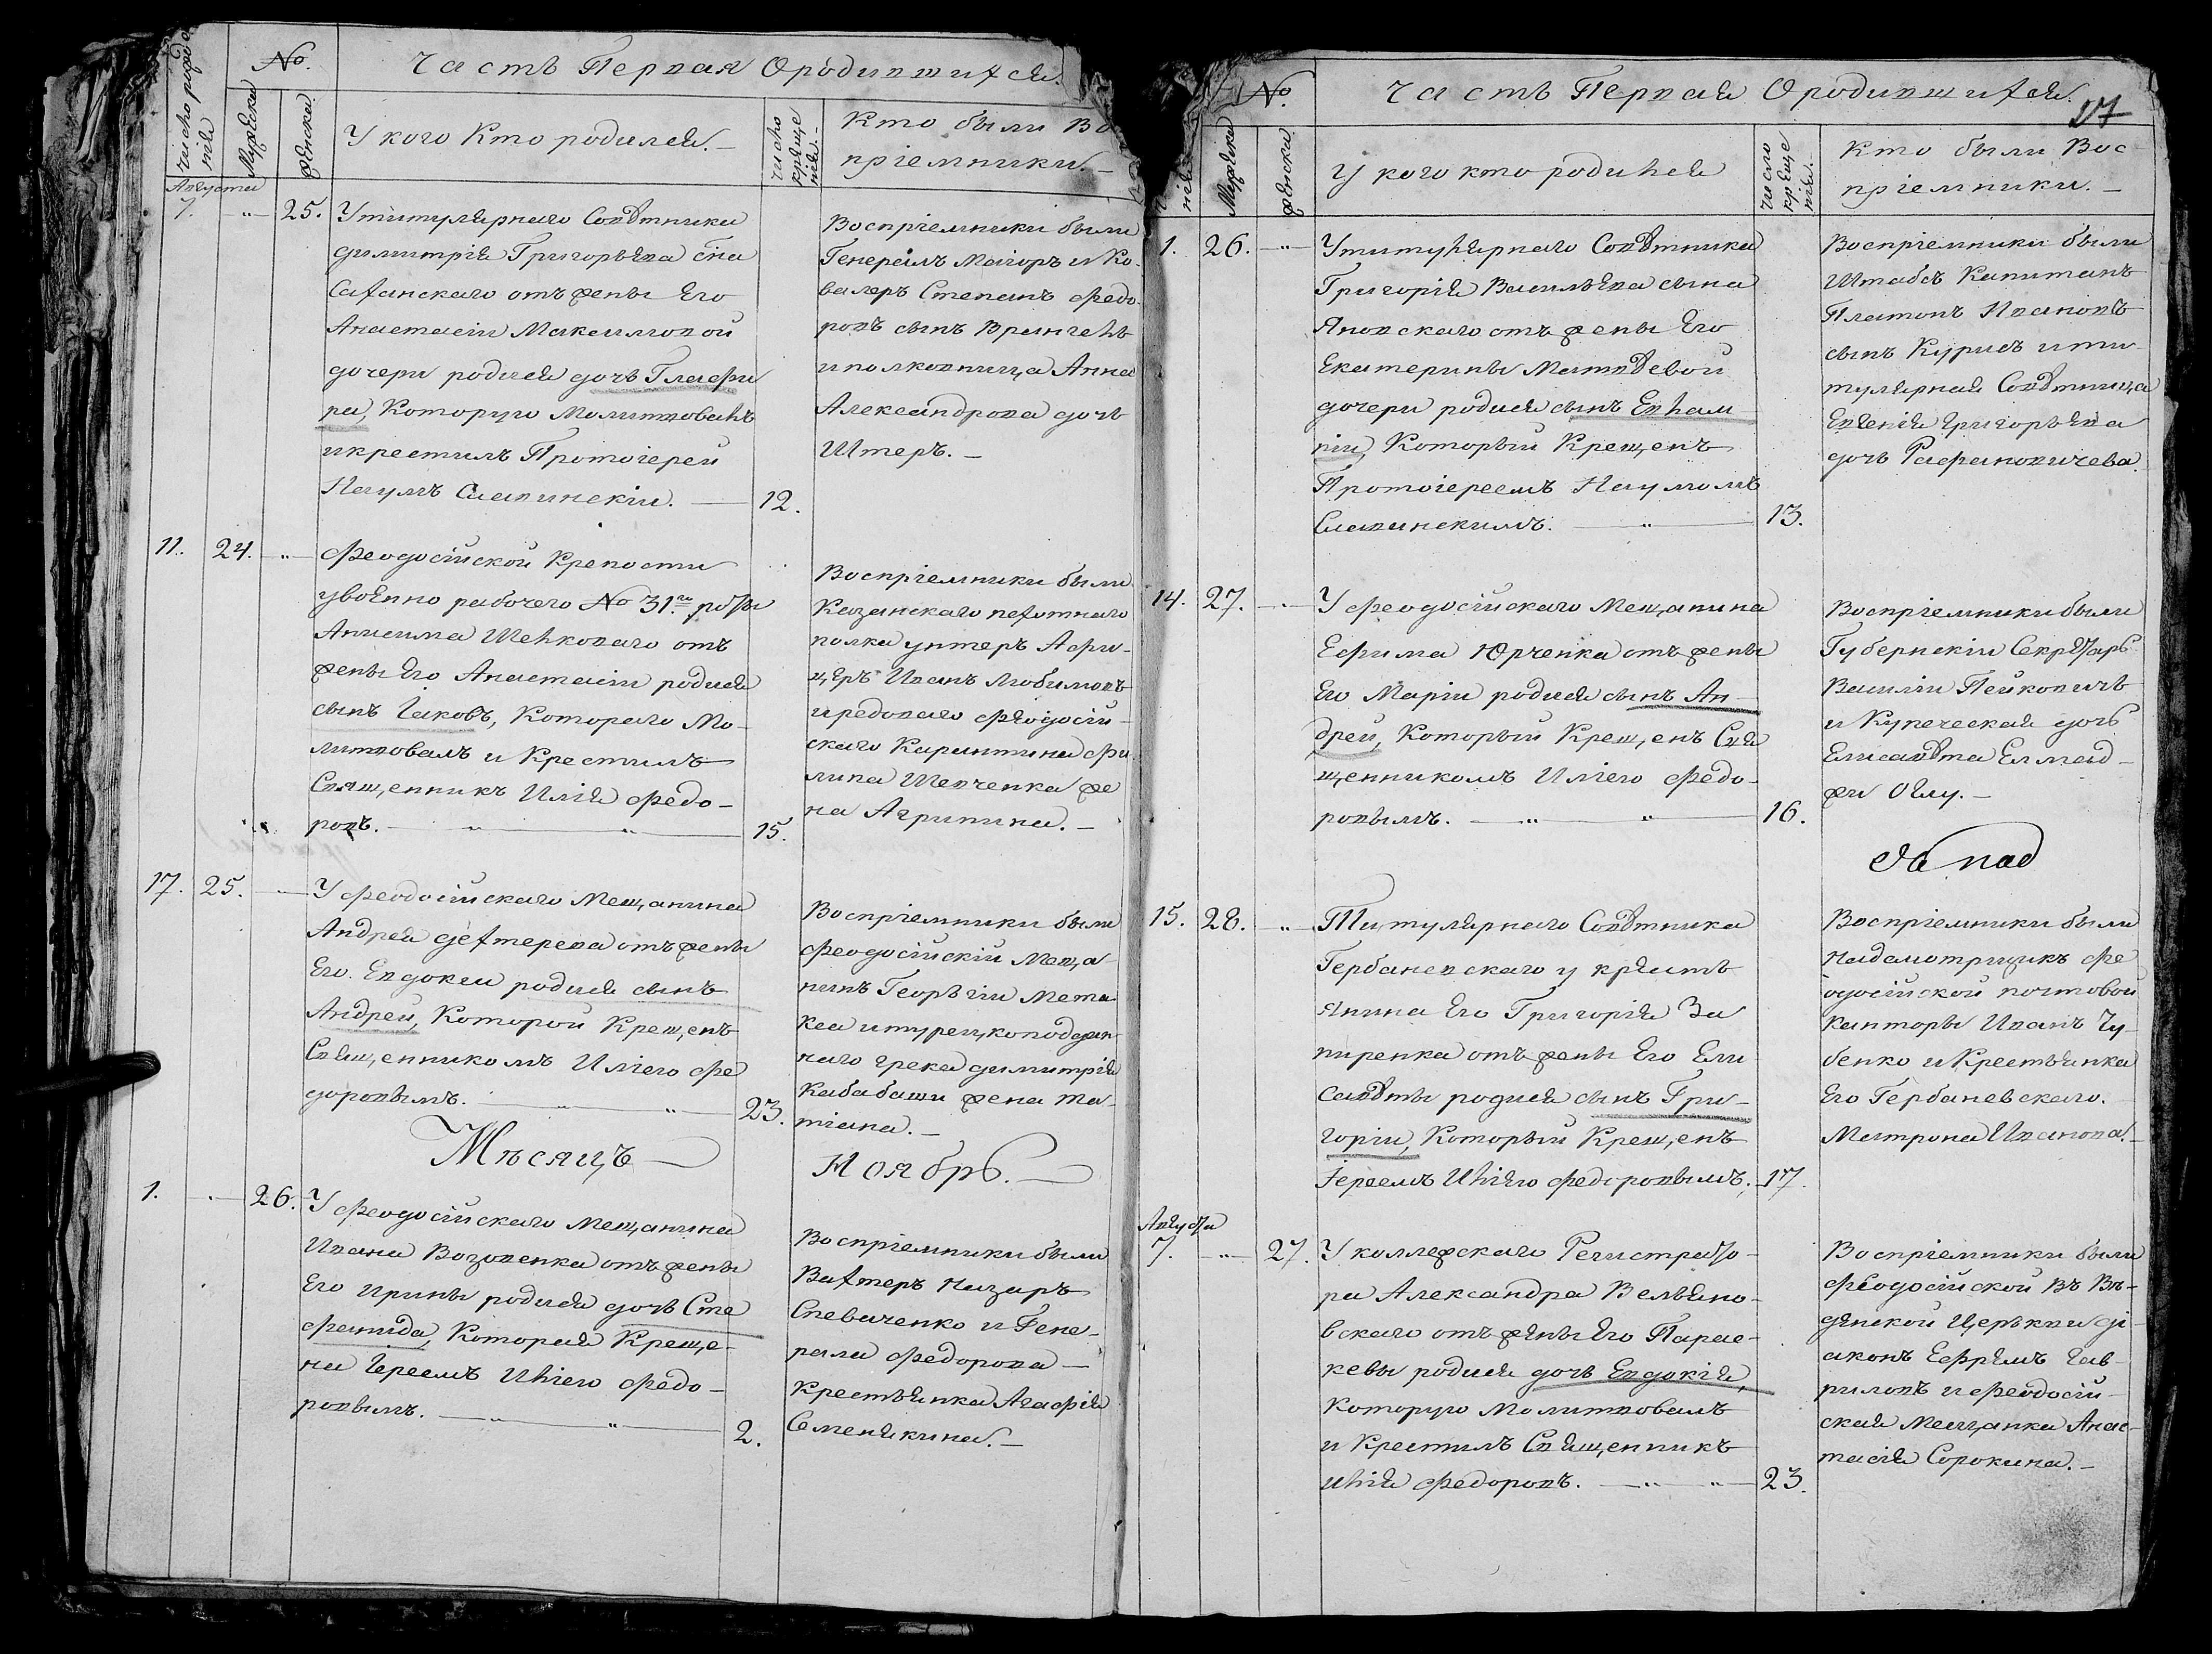 Часть Первая О родившихся.
Число рожде
нія
№.
Мужеска
женска
У кого Кто родился.
число
креще
нія.
Кто были Во
пріемники.
Августа
7. 25. У титулярнаго Совѣтника
Димитрія Григорьева сна
Саханскаго отъ жены Его
Анастасіи Максимовой
дочери родися дочь Глафи
ра, Которую Молитвовалъ
и крестилъ Протоіерей
Наумъ Славинскій. 12.
Воспріемники были
Генералъ Маіоръ и Ка
валеръ Степанъ Федо
ровъ сынъ Врангель
и полковница Анна
Александрова дочь
Штеръ.
11. 24. Феодосійской Крепости
у военно рабочего № 31.й роты
Анисима Шелковаго отъ
жены Его Анастасіи родися
сынъ Іаковъ, Котораго Мо-
литвовалъ и Крестилъ
Священникъ Илія Федо-
ровъ. 15.
Воспріемники были
Казанскаго пехотнаго
полка унтеръ Афи-
церъ Иванъ Любимовъ
и редоваго Феодосій-
скаго Карантина Фи
липа Шевченка же
на Агрипина.
17. 25. У Феодосійскаго Мещанина
Андрея Дехтерева отъ жены
Его Евдокеи родися сынъ
Андрей, Которой Крещенъ
Священникомъ Иліею Фе
доровымъ. 23.
Воспріемники были
Феодосійскій Меща
нинъ Георгій Мета
кса и турецкоподдан-
наго грека Димитрія
Кабабаши жена та-
тіана.
Мѣсяцъ Ноябрь.
1. 26. У Феодосійскаго мещанина
Ивана Возовенка отъ жены
Его Ирины родися дочь Сте
фанида, Которая Креще-
на Іереемъ Иліею Федо-
ровымъ. 2.
Воспріемники были
Вахтеръ Назаръ
Спеваченко и Гене-
рала Федорова
Крестьянка Агафія
Семенякина.
27
№.
Часть Первая О родившихся.
нія
Мужеска
женска
У кого кто родился
число
креще
нія.
Кто были Вос-
пріемники.
1. 26. У титулярнаго Совѣтника
Григорія Васильева сына
Яновскаго отъ жены Его
Екатерины Матвѣевой
дочери родися сынъ Евлам
пій, Который Крещенъ
Протоіереемъ Наумомъ
Славинскимъ. 13.
Воспріемники были
Штабсъ Капитанъ
Платонъ Ивановъ
сынъ Курисъ и ти-
тулярная Совѣтница
Евгенія Григорьева
дочь Рафановичева
14. 27. У Феодосійскаго Мещанина
Ефима Юрченка отъ жены
Его Маріи родися сынъ Ан-
дрей, Который Крещенъ Свя
щенникомъ Иліею Федо-
ровымъ. 16.
Воспріемники были
Губернскій Секретарь
Василій Пейковичъ
и Купеческая дочь
Елисавѣта Елмад-
жи Оглу.
15. 28. Титулярнаго Совѣтника
Гербаневскаго у крѣсть
янина Его Григорія За
пиренка отъ жены Его Ели
савѣты родися сынъ Гри-
горій, Который Крещенъ
Іереемъ Иліею Федоровымъ. 17.
Воспріемники были
Надсмотрщикъ Фе
одосійской почтовой
Канторы Иванъ Чу-
бенко и Крестьянка
Его Гербаневскаго.
Матрона Иванова.
Августа
7. 27. У коллежскаго Регистрато-
ра Александра Вельяно-
вскаго отъ жены Его Парас-
кевы родися дочь Евдокія,
Которую Молитвовалъ
и Крестилъ Священникъ
Илія Федоровъ. 23.
Воспріемники были
Феодосійской Въ Вѣ-
дѣнской Церькви ді-
аконъ Ефремъ Гав-
риловъ и Феодосій-
ская Мещанка Анас-
тасія Сорокина.